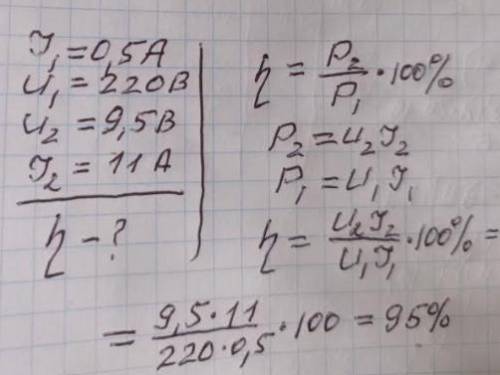 I₁ = 0,5А
U₁ = 220В
U₂ = 9,5В
I₂ = 11А
η – ?
η = P₂/P₁ · 100%
P₂ = U₂I₂
P₁ = U₁I₁
η = U₂I₂/U₁I₁ · 100% =
= 9,5 · 11/220 · 0,5 · 100 = 95%